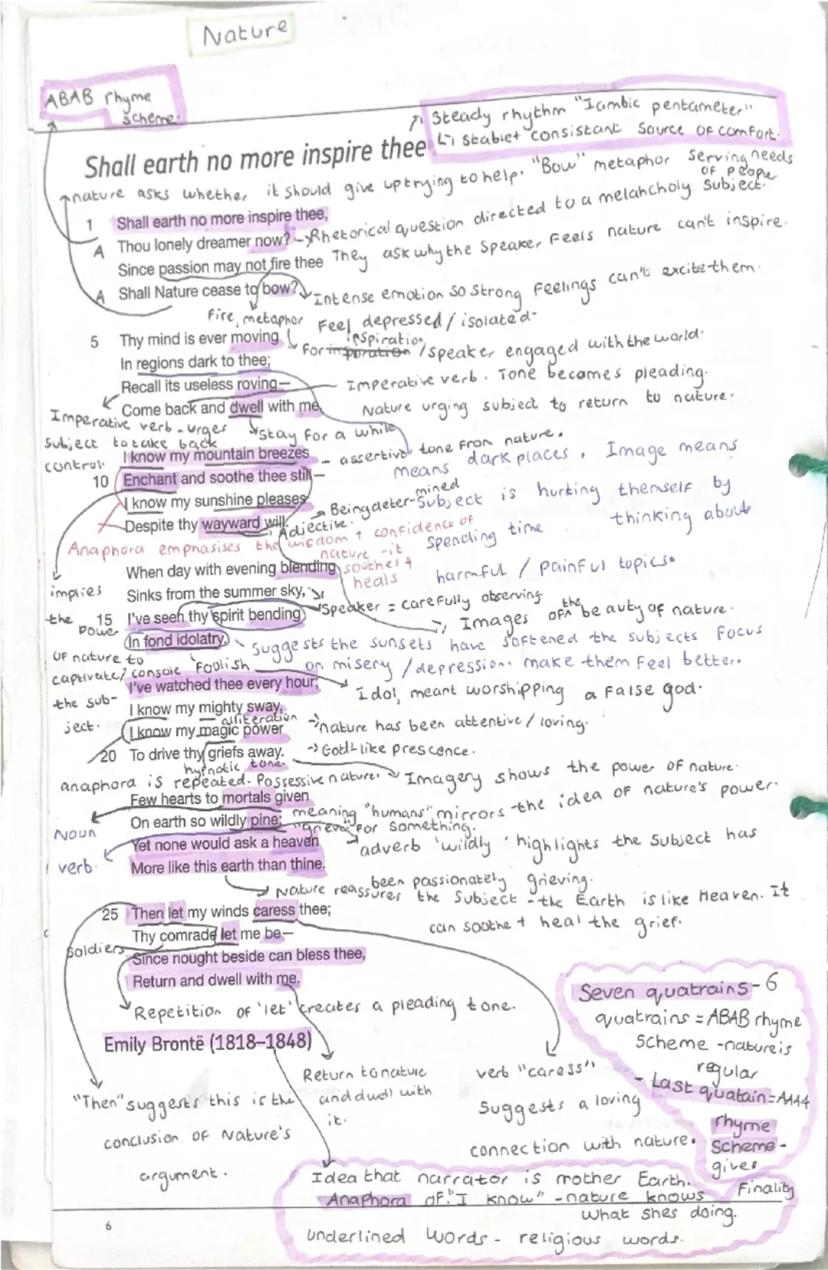 Nature
ABAB rhyme
scheme.
Steady rhythm "Iambic pentameter"
↳ stable + consistant source of comfort.
Shall earth no more inspire thee
nature asks whether it should give up trying to help. "Bow" metaphor serving needs
of people
1 Shall earth no more inspire thee,
A Thou lonely dreamer now? → Rhetorical question directed to a melancholy subject.
Since passion may not fire thee They ask why the speaker feels nature can't inspire.
A Shall Nature cease to bow? Intense emotion so strong feelings can't excite them.
Fire metaphor Feel depressed / isolated.
5 Thy mind is ever moving
inspiration
For inporation / speaker engaged with the world.
In regions dark to thee;
Recall its useless roving— Imperative verb. Tone becomes pleading.
Come back and dwell with me. Nature urging subject to return to nature.
Imperative verb - urges
subject to take back
control.
Stay for a while
I know my mountain breezes - assertive tone from nature.
means dark places. Image means
10 Enchant and soothe thee still—
I know my sunshine pleases
Being determined
subject is hurting themself by
Despite thy wayward will.
Adjective.
spending time thinking about
Anaphora emphasises the wisdom + confidence of
nature - it
soothes +
heals
harmful / painful topics.
When day with evening blending
Sinks from the summer sky,
implies
the
power
of nature to
captivate / console
the sub-
ject.
15 I've seen thy spirit bending Speaker = carefully observing
Images of the beauty of nature.
In fond idolatry. Suggests the sunsets have softened the subjects focus
Foolish on misery / depression. make them feel better.
I've watched thee every hour; Idol, meant worshipping a false god.
I know my mighty sway,
alliteration → nature has been attentive / loving.
I know my magic power
20 To drive thy griefs away. → God-like prescence.
hypnotic tone.
anaphora is repeated. Possessive nature. Imagery shows the power of nature.
Few hearts to mortals given
On earth so wildly pine; meaning "humans" mirrors the idea of nature's power.
Noun
"grieve" for something.
Yet none would ask a heaven adverb 'wildly' highlights the subject has
verb.
More like this earth than thine.
been passionately grieving.
Nature reassures the subject - the Earth is like Heaven. It
can soothe + heal the grief.
25 Then let my winds caress thee;
Thy comrade let me be—
Soldiers
Since nought beside can bless thee,
Return and dwell with me.
Repetition of 'let' creates a pleading tone.
Emily Brontë (1818–1848)
Seven quatrains - 6
quatrains = ABAB rhyme
scheme - nature is
regular
- Last quatain = AAAA
rhyme
scheme -
gives
Finality
"Then" suggests this is the
conclusion of Nature's
argument.
Return to nature
and dwell with
it.
verb "caress"
suggests a loving
connection with nature.
Idea that narrator is mother Earth.
Anaphora of "I know" - nature knows
what shes doing.
underlined words - religious words.
6